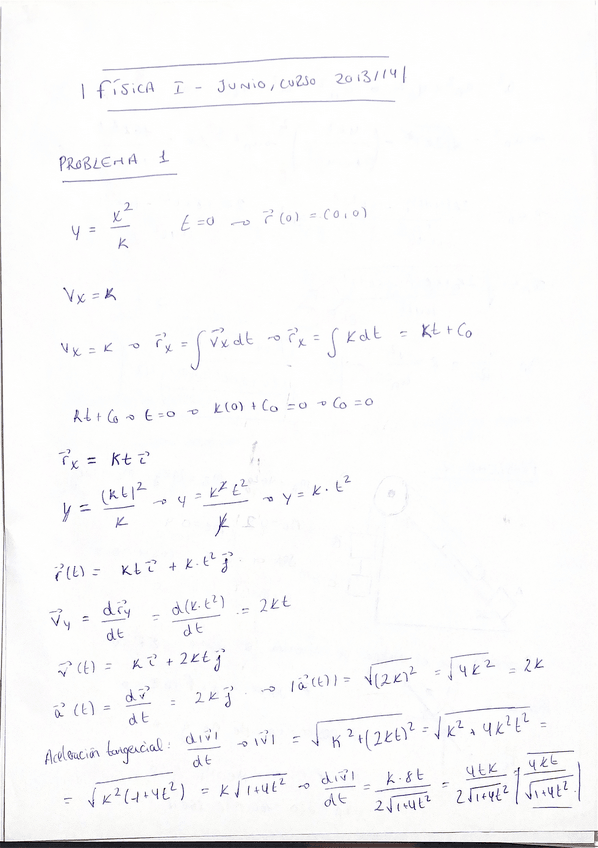 FÍSICA I - JUNIO, CURSO 2013/14
PROBLEMA 1
y = x²/k   t=0 → r⃗(0) = (0,0)
Vx = k
Vx = k → r⃗x = ∫ v⃗x dt → r⃗x = ∫ k dt = kt + C₀
kt + C₀ → t=0 → k(0) + C₀ = 0 → C₀ = 0
r⃗x = kt i⃗
y = (kt)²/k → y = k²t²/k → y = k · t²
r⃗(t) = kt i⃗ + k·t² j⃗
v⃗y = dr⃗y/dt = d(k·t²)/dt = 2kt
v⃗(t) = k i⃗ + 2kt j⃗
a⃗(t) = dv⃗/dt = 2k j⃗ → |a⃗(t)| = √(2k)² = √4k² = 2k
Aceleración tangencial: d|v⃗|/dt → |v⃗| = √k²+(2kt)² = √k² + 4k²t² =
= √k²(1+4t²) = k√1+4t² → d|v⃗|/dt = k·8t/2√1+4t² = 4tk/2√1+4t² | 4kt/√1+4t² |